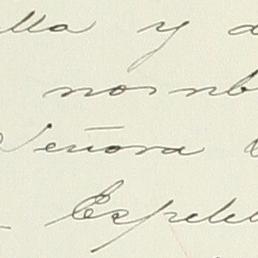 lla y d
nomb
Señora
Espele